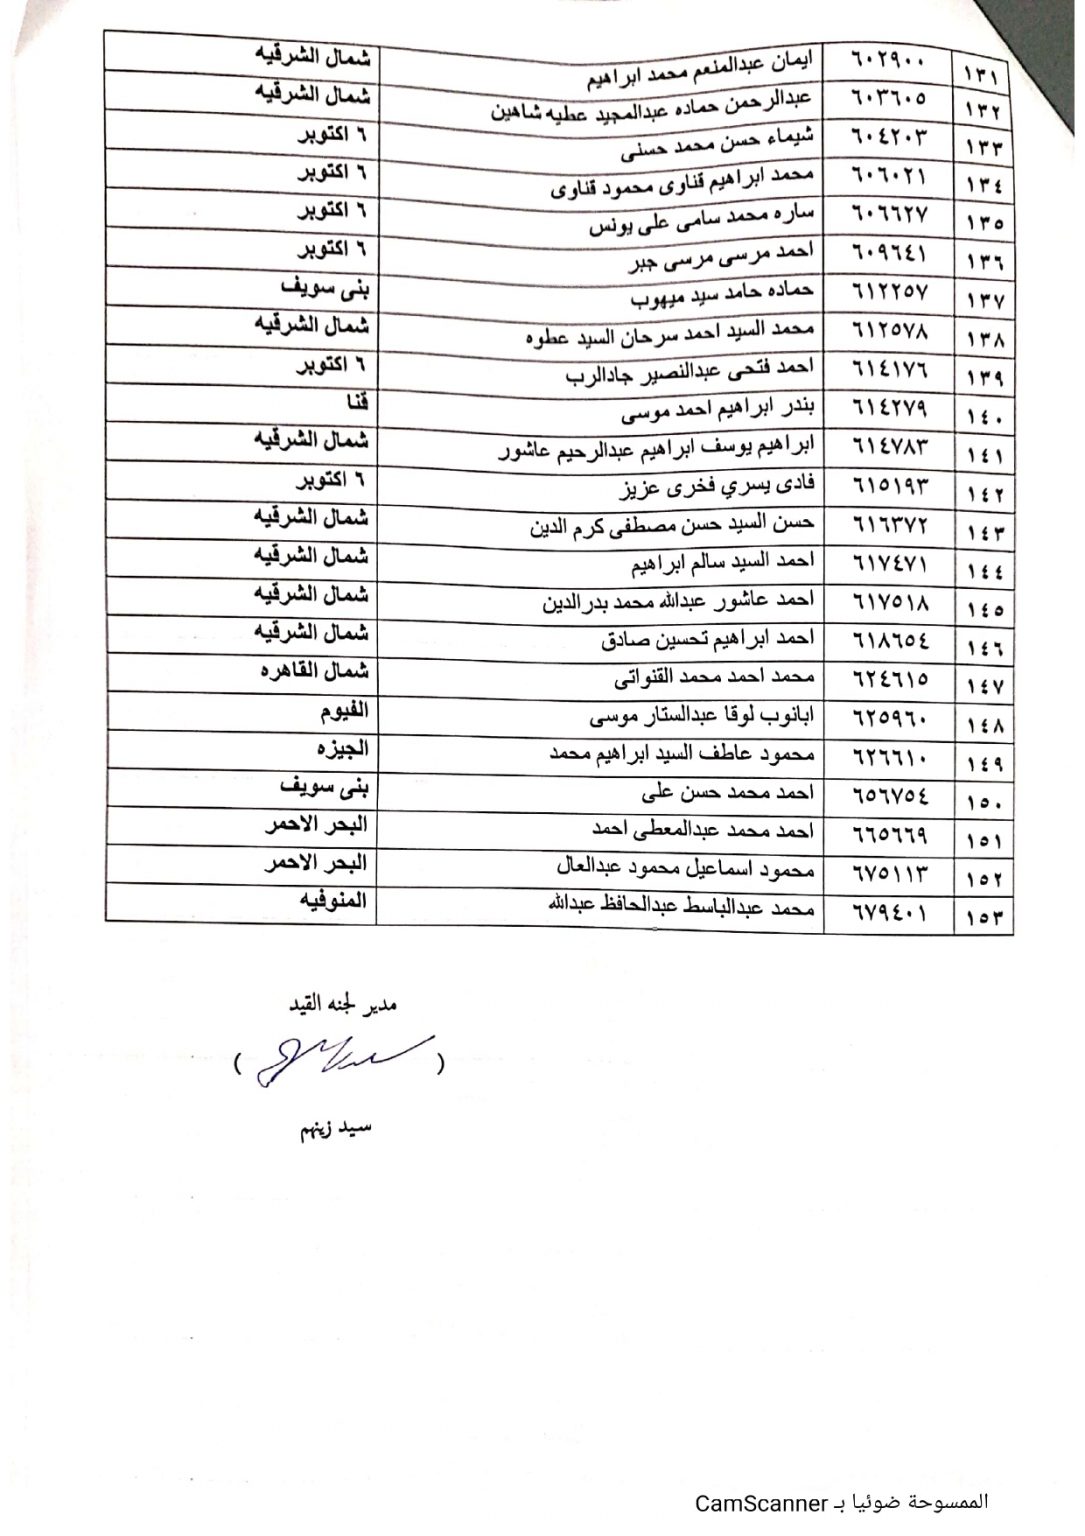 ١٣١ ٦٠٢٩٠٠ ايمان عبدالمنعم محمد ابراهيم شمال الشرقيه
١٣٢ ٦٠٣٦٠٥ عبدالرحمن حماده عبدالمجيد عطيه شاهين شمال الشرقيه
١٣٣ ٦٠٤٢٠٣ شيماء حسن محمد حسنى ٦ اكتوبر
١٣٤ ٦٠٦٠٢١ محمد ابراهيم قناوى محمود قناوى ٦ اكتوبر
١٣٥ ٦٠٦٦٢٧ ساره محمد سامى على يونس ٦ اكتوبر
١٣٦ ٦٠٩٦٤١ احمد مرسى مرسى جبر ٦ اكتوبر
١٣٧ ٦١٢٢٥٧ حماده حامد سيد ميهوب بنى سويف
١٣٨ ٦١٢٥٧٨ محمد السيد احمد سرحان السيد عطوه شمال الشرقيه
١٣٩ ٦١٤١٧٦ احمد فتحى عبدالنصير جادالرب ٦ اكتوبر
١٤٠ ٦١٤٢٧٩ بندر ابراهيم احمد موسى قنا
١٤١ ٦١٤٧٨٣ ابراهيم يوسف ابراهيم عبدالرحيم عاشور شمال الشرقيه
١٤٢ ٦١٥١٩٣ فادى يسري فخرى عزيز ٦ اكتوبر
١٤٣ ٦١٦٣٧٢ حسن السيد حسن مصطفى كرم الدين شمال الشرقيه
١٤٤ ٦١٧٤٧١ احمد السيد سالم ابراهيم شمال الشرقيه
١٤٥ ٦١٧٥١٨ احمد عاشور عبدالله محمد بدرالدين شمال الشرقيه
١٤٦ ٦١٨٦٥٤ احمد ابراهيم تحسين صادق شمال الشرقيه
١٤٧ ٦٢٤٦١٥ محمد احمد محمد القنواتى شمال القاهره
١٤٨ ٦٢٥٩٦٠ ابانوب لوقا عبدالستار موسى الفيوم
١٤٩ ٦٢٦٦١٠ محمود عاطف السيد ابراهيم محمد الجيزه
١٥٠ ٦٥٦٧٥٤ احمد محمد حسن على بنى سويف
١٥١ ٦٦٥٦٦٩ احمد محمد عبدالمعطى احمد البحر الاحمر
١٥٢ ٦٧٥١١٣ محمود اسماعيل محمود عبدالعال البحر الاحمر
١٥٣ ٦٧٩٤٠١ محمد عبدالباسط عبدالحافظ عبدالله المنوفيه
مدير لجنه القيد
( )
سيد زينهم
الممسوحة ضوئيا بـ CamScanner